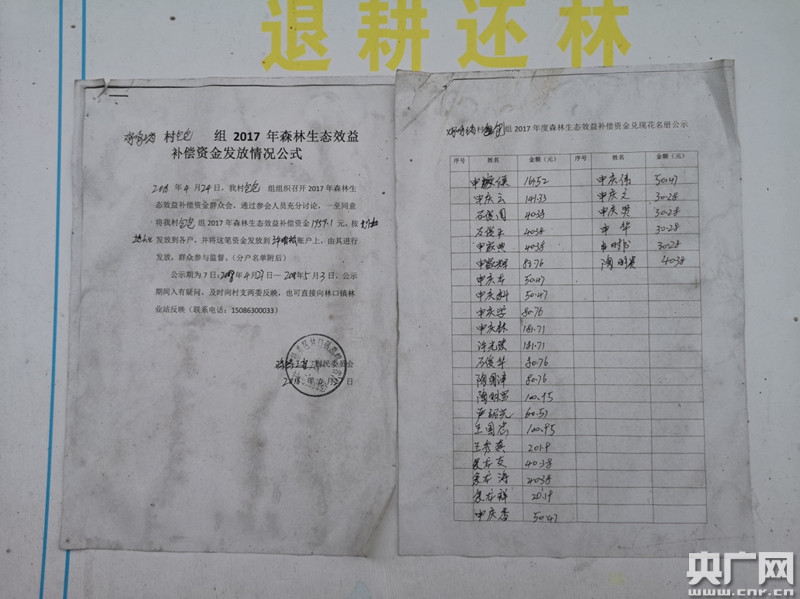 退耕还林
村 组 2017 年森林生态效益
补偿资金发放情况公式
2018年4月24日，我村 组组织召开 2017 年森林生
态效益补偿资金群众会，通过参会人员充分讨论，一至同意
将我村 组 2017 年森林生态效益补偿资金 1957.1 元，按
发放到各户，并将这笔资金发放到 账户上，由其进行
发放，群众参与监督。（分户名单附后）
公示期为 7 日，2018年4月27日—2018年5月3日，公示
期间入有疑问，及时向村支两委反映，也可直接向林口镇林
业站反映（联系电话：15086300033）
村民委员会
2018年4月27日
村 组 2017 年度森林生态效益补偿资金兑现花名册公示
序号 姓名 金额（元） 序号 姓名 金额（元）
申 侯 161.52 申庆伟 50.47
申庆云 141.33 申庆文 30.28
石俊国 40.38 申庆贤 30.28
石俊平 40.38 申华 30.28
申家典 40.38 30.28
申家辉 83.76 陶明贵 40.38
申庆本 50.47
申庆科 50.47
申庆学 80.76
申庆林 181.71
许光荣 181.71
石俊华 80.76
陶国泽 80.76
陶明军 100.95
60.57
王国志 100.95
王秀英 20.19
龙友 40.38
龙海 40.38
龙祥 20.19
申庆香 50.47
央广网
www.cnr.cn